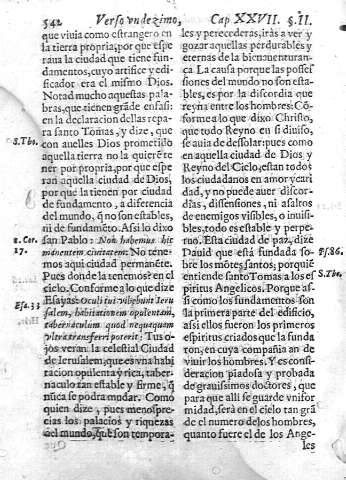 542 Verso vndezimo, Cap XXVII. §.II.
que viuia como estrangero en
la tierra propria, por que espe
raua la ciudad que tiene fun-
damentos, cuyo artifice y edi-
ficador era el mismo Dios.
Notad mucho aquestas pala-
bras, que tienen grãde enfasi:
en la declaracion dellas repa-
ra santo Tomas, y dize, que
con auelles Dios prometido
aquella tierra no la quierẽ te
ner por propria, por que espe
ran aquella ciudad de Dios,
por que la tienen por ciudad
de fundamento, a diferencia
del mundo, q̃ no son estables,
ni de fundamẽto. Assi lo dixo
san Pablo: Non habemus hic
manentem ciuitatem: No tene-
mos aqui ciudad permanẽte.
Pues donde la tenemos? en el
cielo. Conforme a lo que dize
Esayas: Oculi tui videbunt Ieru
salem, habitationem opulentam,
tabernaculum quod nequaquam
vltra transferri poterit: Tus o-
jos veran la celestial Ciudad
de Ierusalem, que es vna habi
tacion opulenta y rica, taber-
naculo tan estable y firme, q̃
nũca se podra mudar. Como
quien dize, pues menospre-
cias los palacios y riquezas
del mundo, que son tempora-
S. Tho.
2. Cor.
17.
Esa. 33
les y perecederas, iràs a ver y
gozar aquellas perdurables y
eternas de la bienauenturan-
ça. La causa porque las posses
siones del mundo no son esta-
bles, es por la discordia que
reyna entre los hombres: Cõ-
forme a lo que dixo Christo,
que todo Reyno en si diuiso,
se auia de dessolar: pues como
en aquella ciudad de Dios y
Reyno del Cielo, estan todos
los ciudadanos en amor y cari
dad, y no puede auer discor-
dias, dissensiones, ni asaltos
de enemigos visibles, o inuisi-
bles, todo es estable y perpe-
tuo. Esta ciudad de paz, dize
Dauid que està fundada so-
bre los mõtes santos: por quiẽ
entiende santo Tomas a los es
piritus Angelicos. Porque as-
si como los fundamentos son
la primera parte del edificio,
assi ellos fueron los primeros
espiritus criados que la funda
ron, en cuya compañia an de
viuir los hombres. Y es consi-
deracion piadosa y probada
de grauissimos doctores, que
para que alli se guarde vnifor
midad, serà en el cielo tan grã
de el numero de los hombres,
quanto fuere el de los Ange-
Ps. 86.
S. Tho.
les